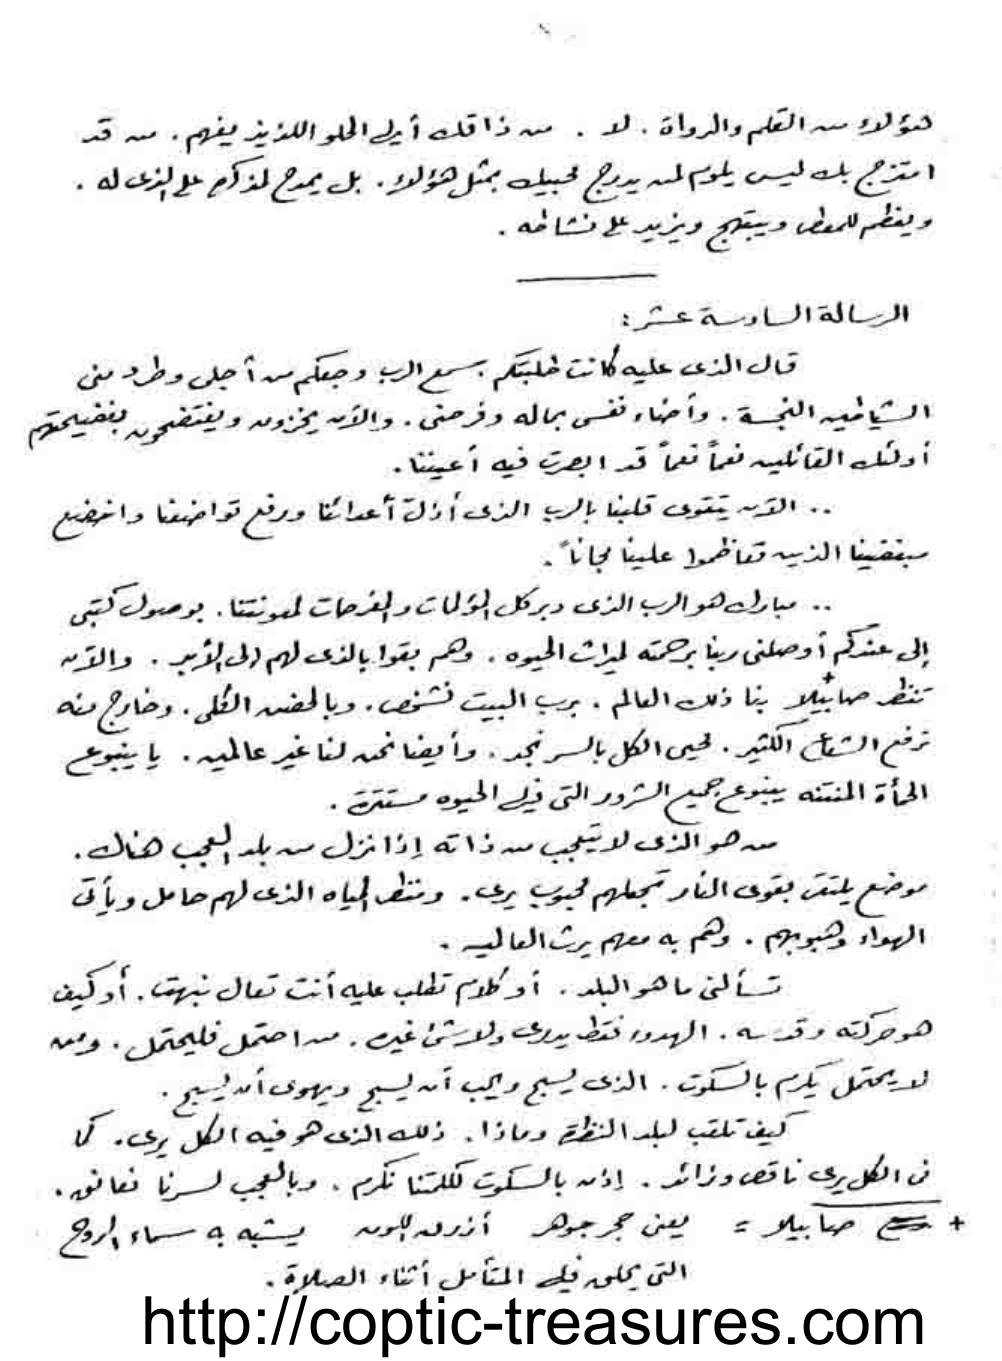 هؤلاء من القلم والدواة . لا . من ذاقك أيها الحلو اللذيذ يفهم . من قد
امتزج بك ليس يلوم لمن يدرج محبيك بمثل هؤلاء . بل يمدح لمذكره على الذى له .
ويعظم للمعطى ويبتهج ويزيد على نشاطه .
الرسالة السادسة عشر :
قال الذى عليه كانت طلبتكم . سمع الرب وجعكم من أجلى وطرد منى
الشياطين النجسة . وأضاء نفسى بماله وفرحنى . والآن يخزون ويفتضحون بفضيحتهم
أولئك القائلين نعماً نعماً قد ابصرت فيه أعيننا .
.. الآن يتقوى قلبنا بالرب الذى أذل أعدائنا ورفع تواضعنا واخضع
مبغضينا الذين تعاظموا علينا مجاناً .
.. مبارك هو الرب الذى دبر كل المؤلمات والمفرحات لمعونتنا . بوصول كتبى
إلى عندكم أوصلنى ربنا برحمته لميراث الحيوه . وهم بقوا بالذى لهم إلى الأبد . والآن
تنظر صهابيلا + بنا ذلك العالم . برب البيت نشخص . وبالحضن الكلى . وخارج منه
ترفع الشعاع الكثير . لمحيى الكل بالسر نجد . وأيضا نحن لنا غير عالمين . يا ينبوع
الحمأة المنتنه ينبوع جميع الشرور التى فيك الحيوه مستترة .
من هو الذى لا يتعجب من ذاته إذا نزل من بلد العجب هناك .
موضع يلتقى بقوى النار تجعلهم محبوب يرى . وننظر المياه الذى لهم حامل ويأتى
الهواء وهبوبهم . وهم به معهم يرث العالمين .
تسألنى ما هو البلد . أو كلام تطلب عليه أنت تعال نبهت . أو كيف
هو حركته وقدسه . الهدوء فقط يدرى ولا شئ غيره . من احتمل فليحتمل . ومن
لا يحتمل يكرم بالسكوت . الذى يسبح ويحب أن يسبح ويهوى أن يسبح .
كيف تلقب لبلد النظرة وماذا . ذلك الذى هو فيه الكل يرى . كما
فى الكل يرى ناقص وزائد . إذن بالسكوت لكلمتنا نكرم . وبالعجب لسرنا نعانق .
+ صهابيلا = يعنى حجر جوهر أزرق اللون يشبه به سماء الروح
التى يحلق فيها المتأمل أثناء الصلاة .
http://coptic-treasures.com